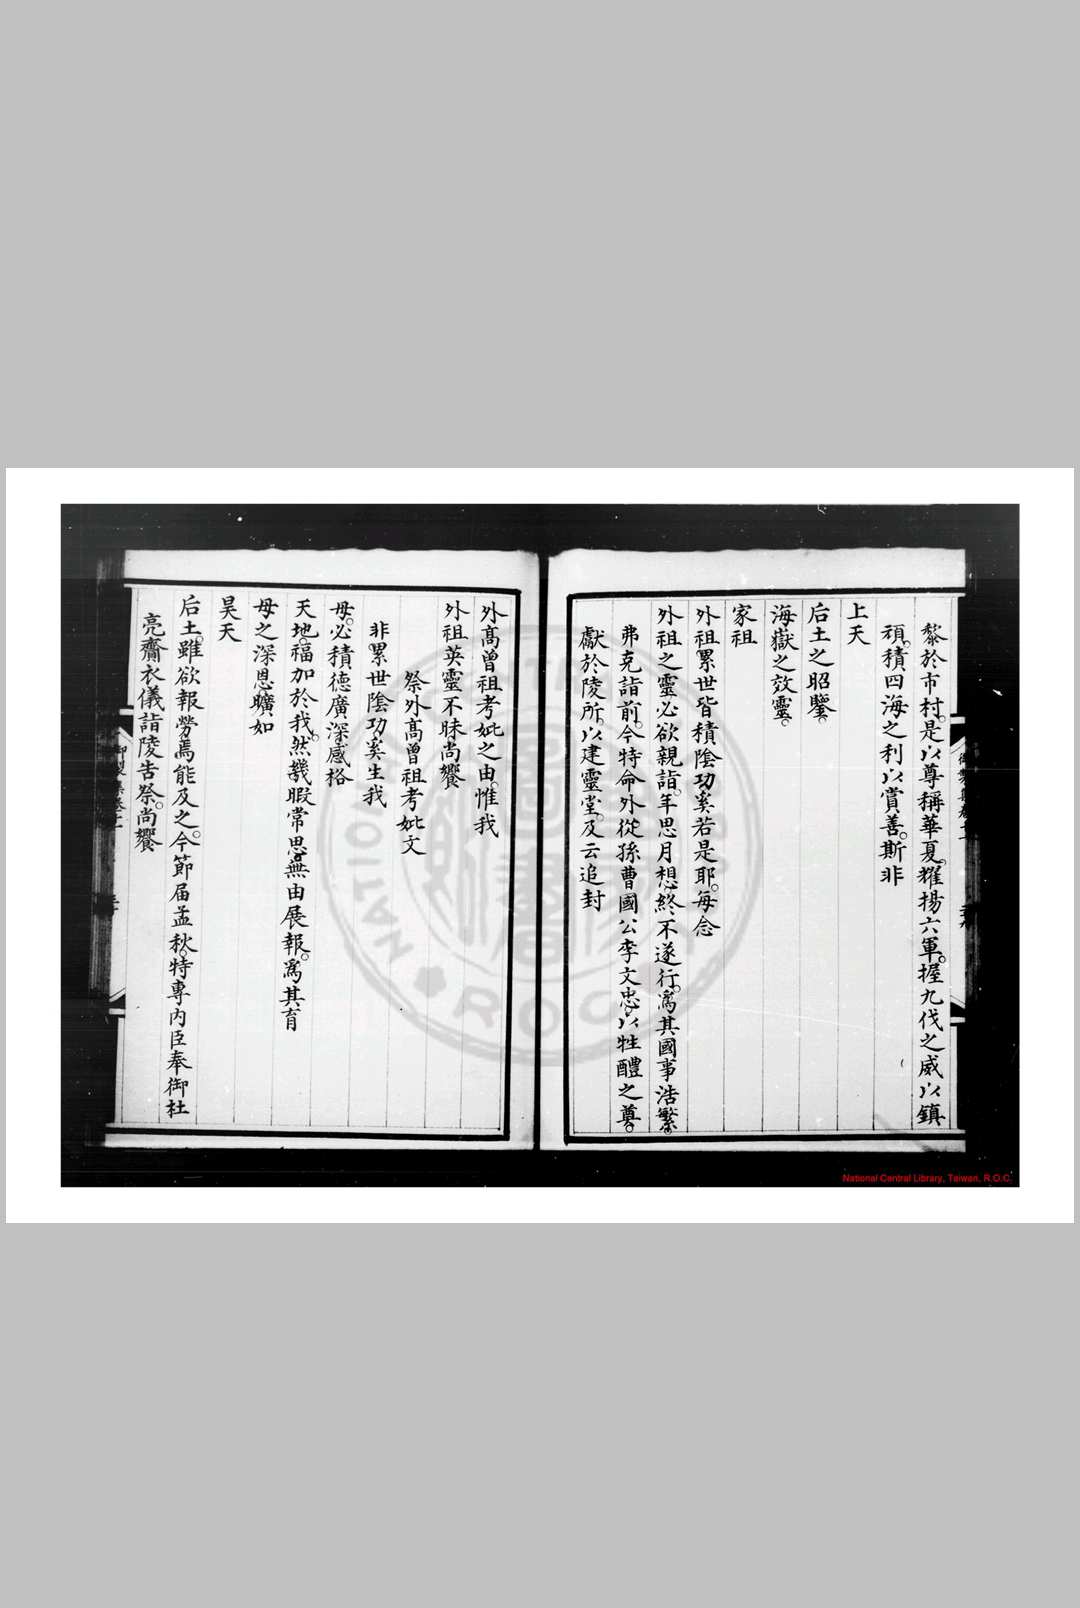 黎於市村。是以尊稱華夏。耀揚六軍。握九伐之威以鎮
頑。積四海之利以賞善。斯非
上天
后土之昭鑒。
海嶽之效靈。
家祖
外祖累世皆積陰功奚若是耶。每念
外祖之靈必欲親詣。年思月想。終不遂行。爲其國事浩繁。
弗克詣前。今特命外從孫曹國公李文忠。以牲醴之奠。
獻於陵所。以建靈堂。及云追封
外高曾祖考妣之由。惟我
外祖英靈不昧尚饗
祭外高曾祖考妣文
非累世陰功奚生我
母。必積德廣深感格
天地。福加於我。然幾暇常思無由展報。爲其育
母之深恩。曠如
昊天
后土。雖欲報勞焉能及之。今節届孟秋。特專内臣奉御杜
亮齋衣儀詣陵告祭。尚饗
National Central Library, Taiwan, R.O.C.